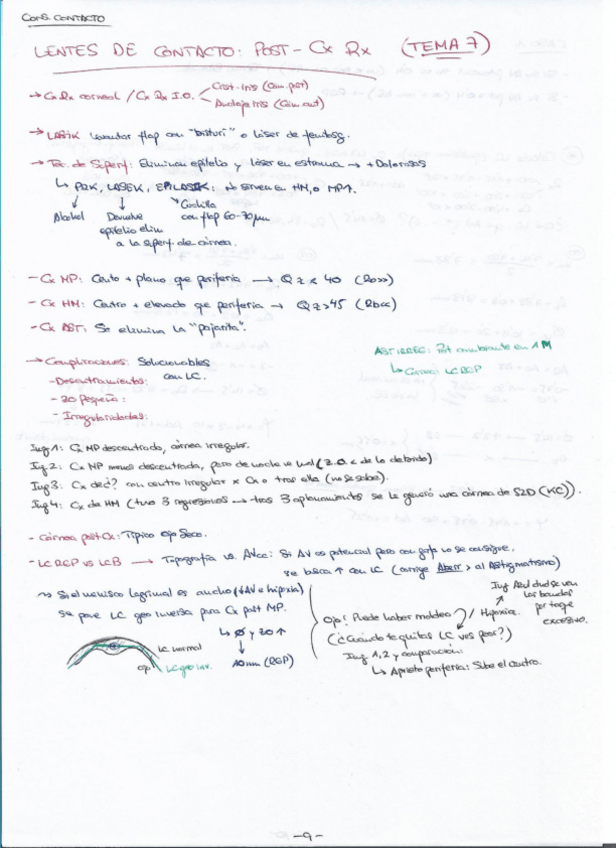 CONS. CONTACTO
LENTES DE CONTACTO: POST-CX RX (TEMA 7)
→ Cx Rx corneal / Cx Rx I.O. Crist-Iris (Cám. post)
Anclaje Iris (Cám. ant)
→ LASIK Levantar flap con "bisturí" o láser de femtosg.
→ Tec. de Superf: Eliminan epitelio y láser en estroma → + Dolorosas
↳ PRK, LASEK, EPILASIK, no sirven en HM, o MP↑.
Alcohol Devuelve Cuchilla
epitelio elim con flap 60-70µm
a la superf. de córnea.
- Cx MP: Centro + plano que periferia → Q z < 40 (Ro>>)
- Cx HM: Centro + elevado que periferia → Q z > 45 (Ro<<)
- Cx AST: Se elimina la "pajarita".
AST IRREG: Pot cambiante en 1 M
↳ Córnea LC RGP
→ Complicaciones: Solucionables
con LC.
- Descentramientos:
- ZO Pequeña:
- Irregularidades:
Img 1: Cx MP descentrado, córnea irregular.
Img 2: Cx MP menos descentrada, pero de noche ve mal (Z.O. < de lo debido)
Img 3: Cx de? con centro irregular x Cx o tras ella (no se sabe).
Img 4: Cx de HM (tuvo 3 regresiones → tras 3 aplanamientos se le generó una córnea de 52D (KC)).
- Córnea post Cx: Típico Ojo Seco.
- LC RGP vs LCB → Topografía vs. AVcc: Si AV es potencial pero con gafa no se consigue,
se busca ↑ con LC (corrige Aberr > al Astigmatismo)
↝ Si el menisco lagrimal es ancho (↓AV e hipoxia)
se pone LC geo inversa para Cx post MP.
↳ Ø y ZO ↑
10mm (RGP)
LC normal
ojo LC geo inv.
Ojo! Puede haber moldeo / Hipoxia.
(¿Cuándo te quitas LC ves peor?)
Img 1, 2 y comparación:
↳ Aprieto periferia: Sube el centro.
Img Azul donde se ven
las bandas
por toque
excesivo.
- 9 -